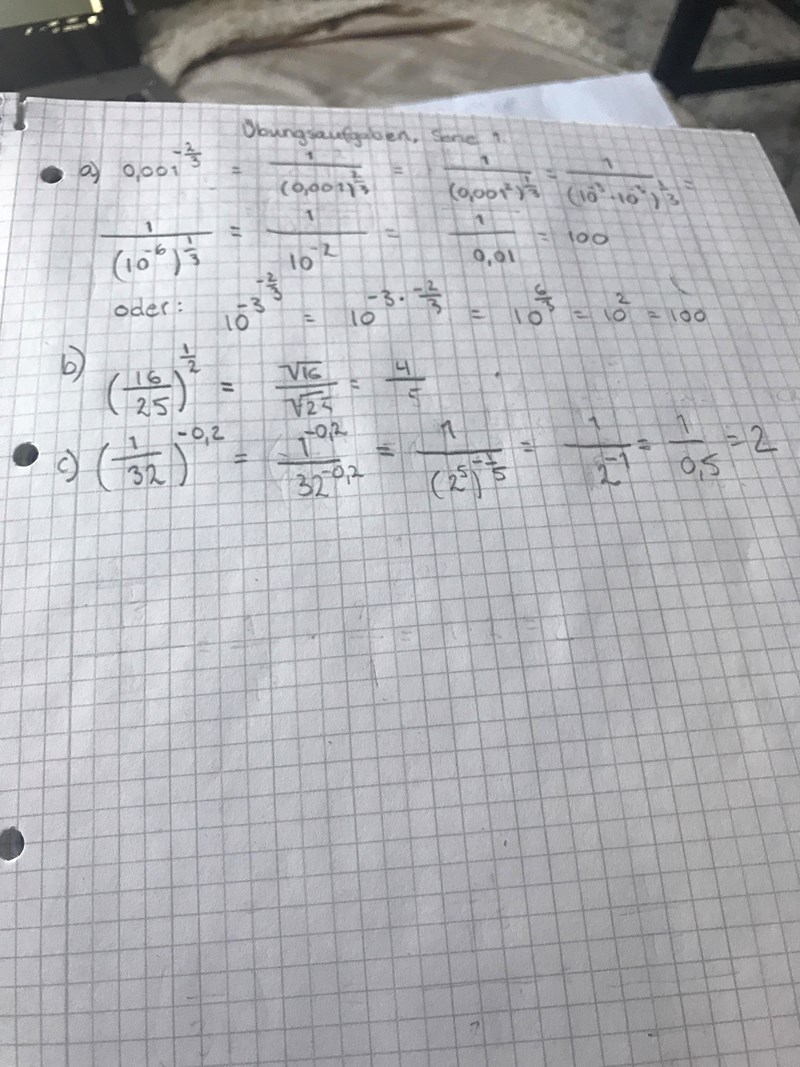 Übungsaufgaben, Serie 1.
a) 0,001^(-2/3) = 1/(0,001)^(2/3) = 1/(0,001²)^(1/3) = 1/(10^-3 · 10^-3)^(1/3) =
1/(10^-6)^(1/3) = 1/10^-2 = 1/0,01 = 100
oder: 10^-3^(-2/3) = 10^(-3 · -2/3) = 10^(6/3) = 10^2 = 100
b) (16/25)^(1/2) = √16/√25 = 4/5
c) (1/32)^-0,2 = 1^-0,2/32^-0,2 = 1/(2^5)^(-1/5) = 1/2^-1 = 1/0,5 = 2